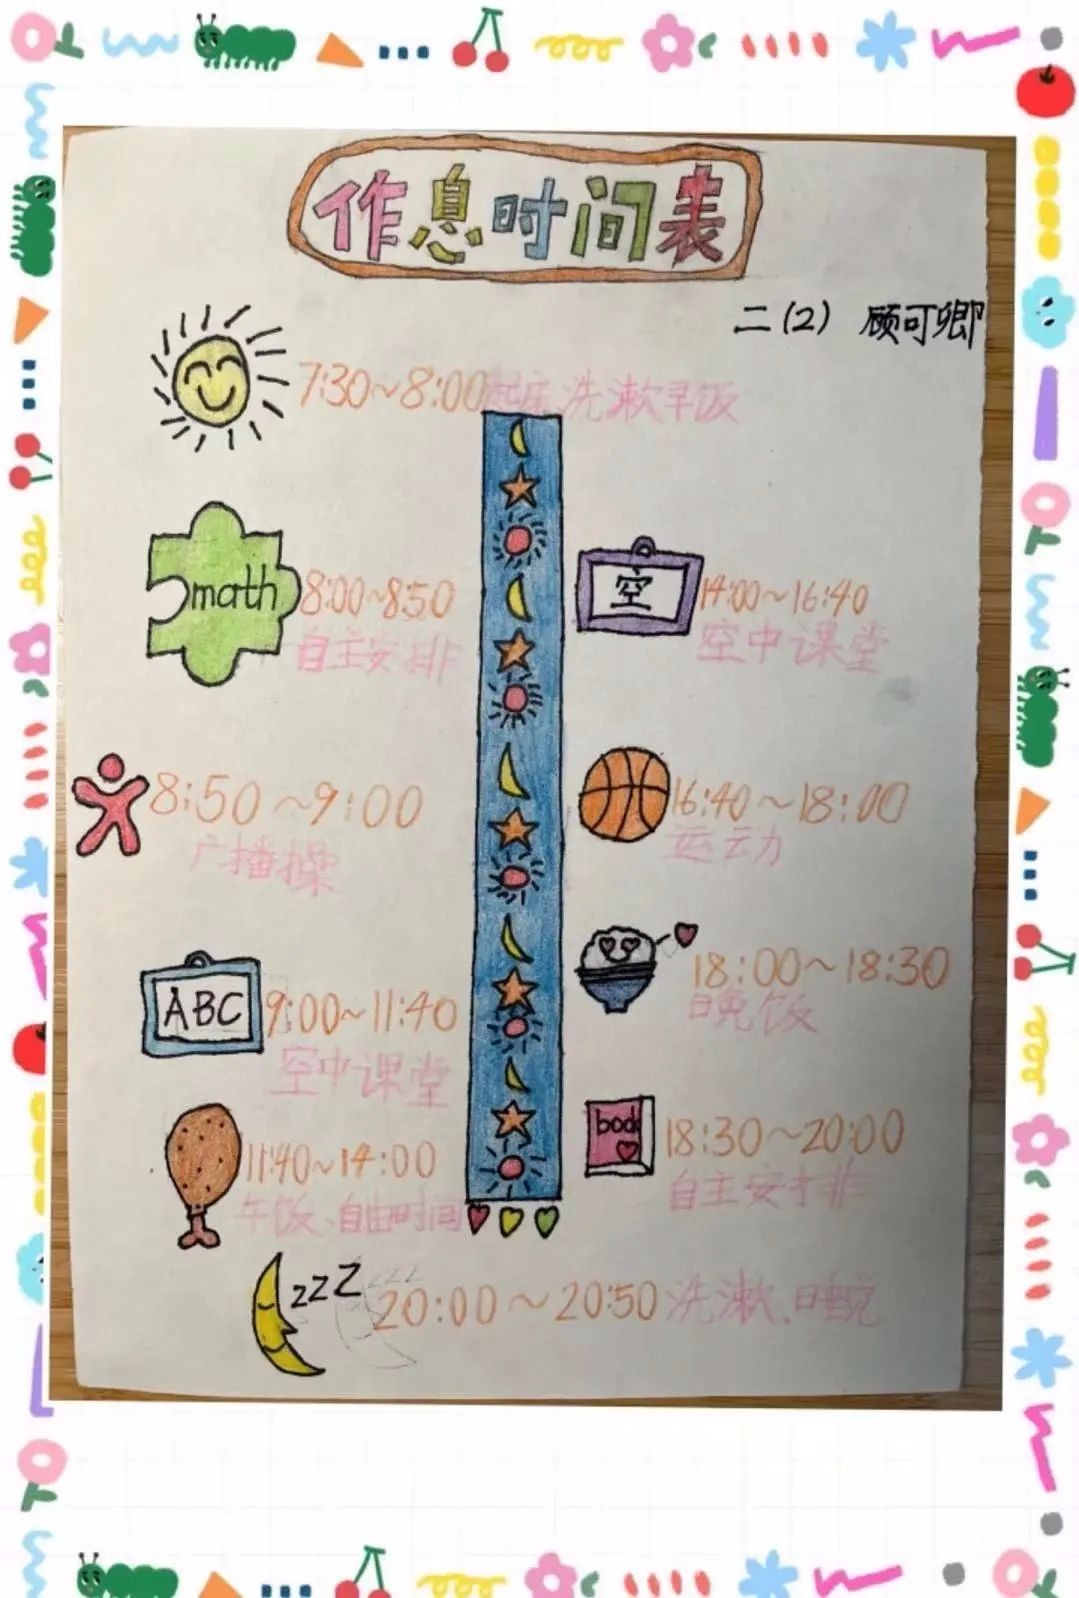 作息时间表
二(2) 顾可卿
7:30~8:00起床洗漱早饭
math
8:00~8:50
自主安排
8:50~9:00
广播操
ABC
9:00~11:40
空中课堂
11:40~14:00
午饭、自由时间
空
14:00~16:40
空中课堂
16:40~18:00
运动
18:00~18:30
晚饭
book
18:30~20:00
自主安排
zzZ
20:00~20:50洗漱、睡觉